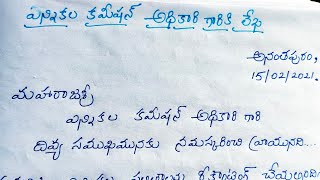 ఎన్నికల కమీషన్ అధికారి గారికి లేఖ
అనంతపురం,
15/02/2021.
మహారాజశ్రీ
ఎన్నికల కమీషన్ అధికారి గారి
దివ్య సముఖమునకు నమస్కరించి వ్రాయునది...